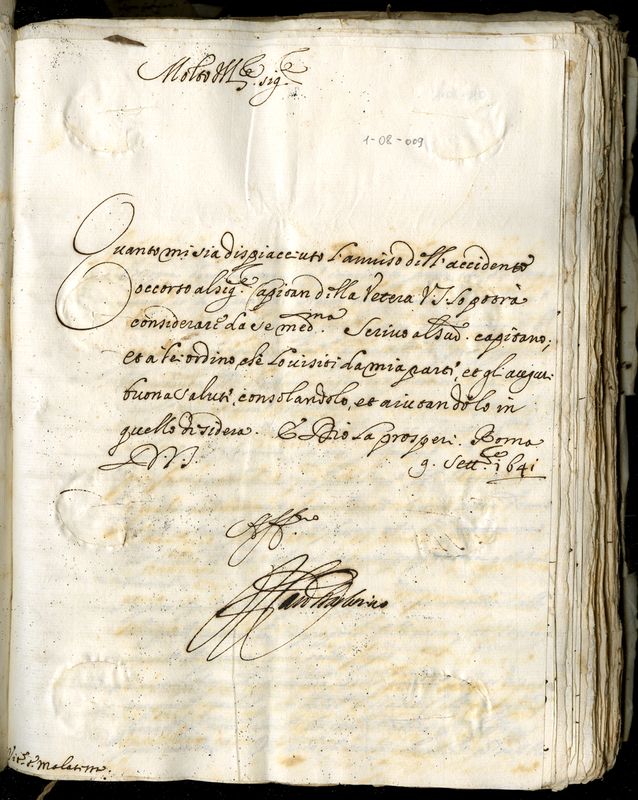 Molto Ill.re Sig.re
1-08-009
Quanto mi sia dispiacciuto l'auuiso dell'accidente
occorto al sig.re Capitan della Vetera V.S. lo potrà
considerare da se med.ma Scriuo al sud. capitano;
et à lei ordino, che lo uisiti da mia parte, et gli auguri
buona salute, consolandolo, et aiutandolo in
quello desidera. E Dio la prosperi. Roma
9. Sett.re 1641
Aff.mo